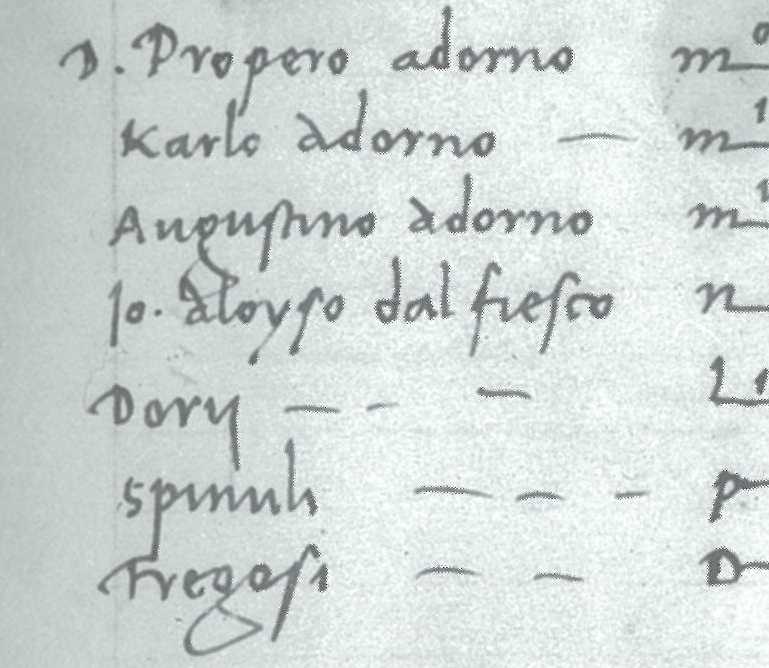 D. Propero adorno m°
Karlo adorno — m
Augustino adorno m
Jo. aloyso dal fiesco n
Dorij — - —
Spinuli — — — p
Fregosi — — D